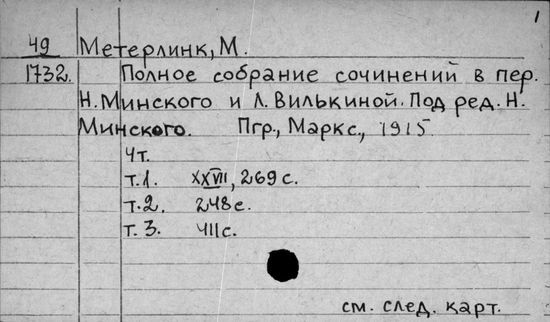 1
49 Метерлинк, М.
1732. Полное собрание сочинений в пер.
Н. Минского и Л. Вилькиной. Под ред. Н.
Минского. Пгр., Маркс, 1915
4т.
т. 1. XXVII, 269 с.
т. 2. 248 с.
т. 3. 411 с.
см. след. карт.